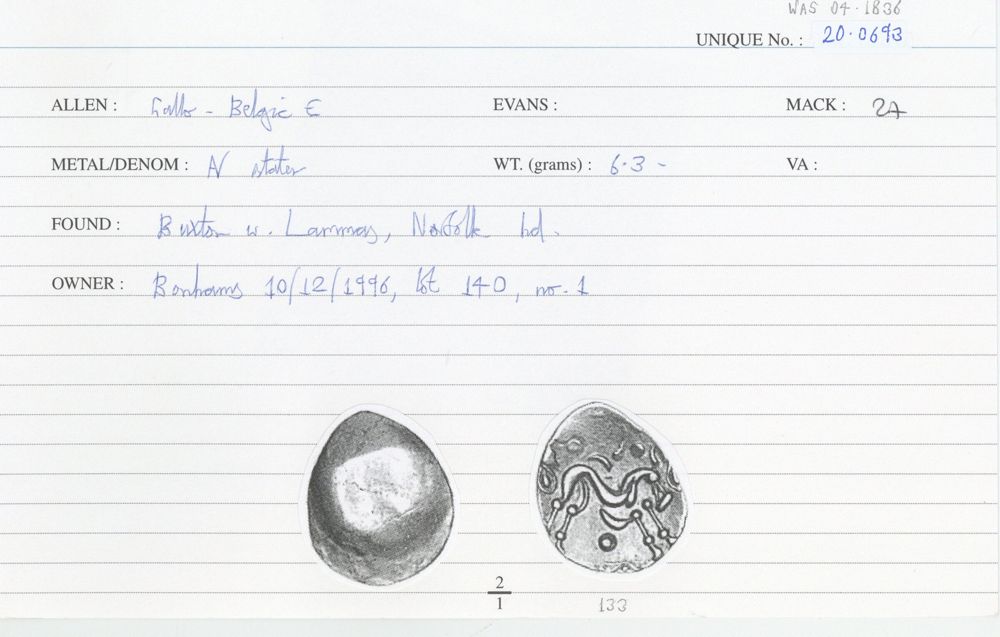 WAS 04.1836
UNIQUE No. : 20.0693
ALLEN : Gallo - Belgic E EVANS : MACK : 27
METAL/DENOM : N stater WT. (grams) : 6.3 - VA :
FOUND : Buxton w. Lammas, Norfolk hd.
OWNER : Bonhams 10/12/1996, lot 140, no. 1
2
1
133